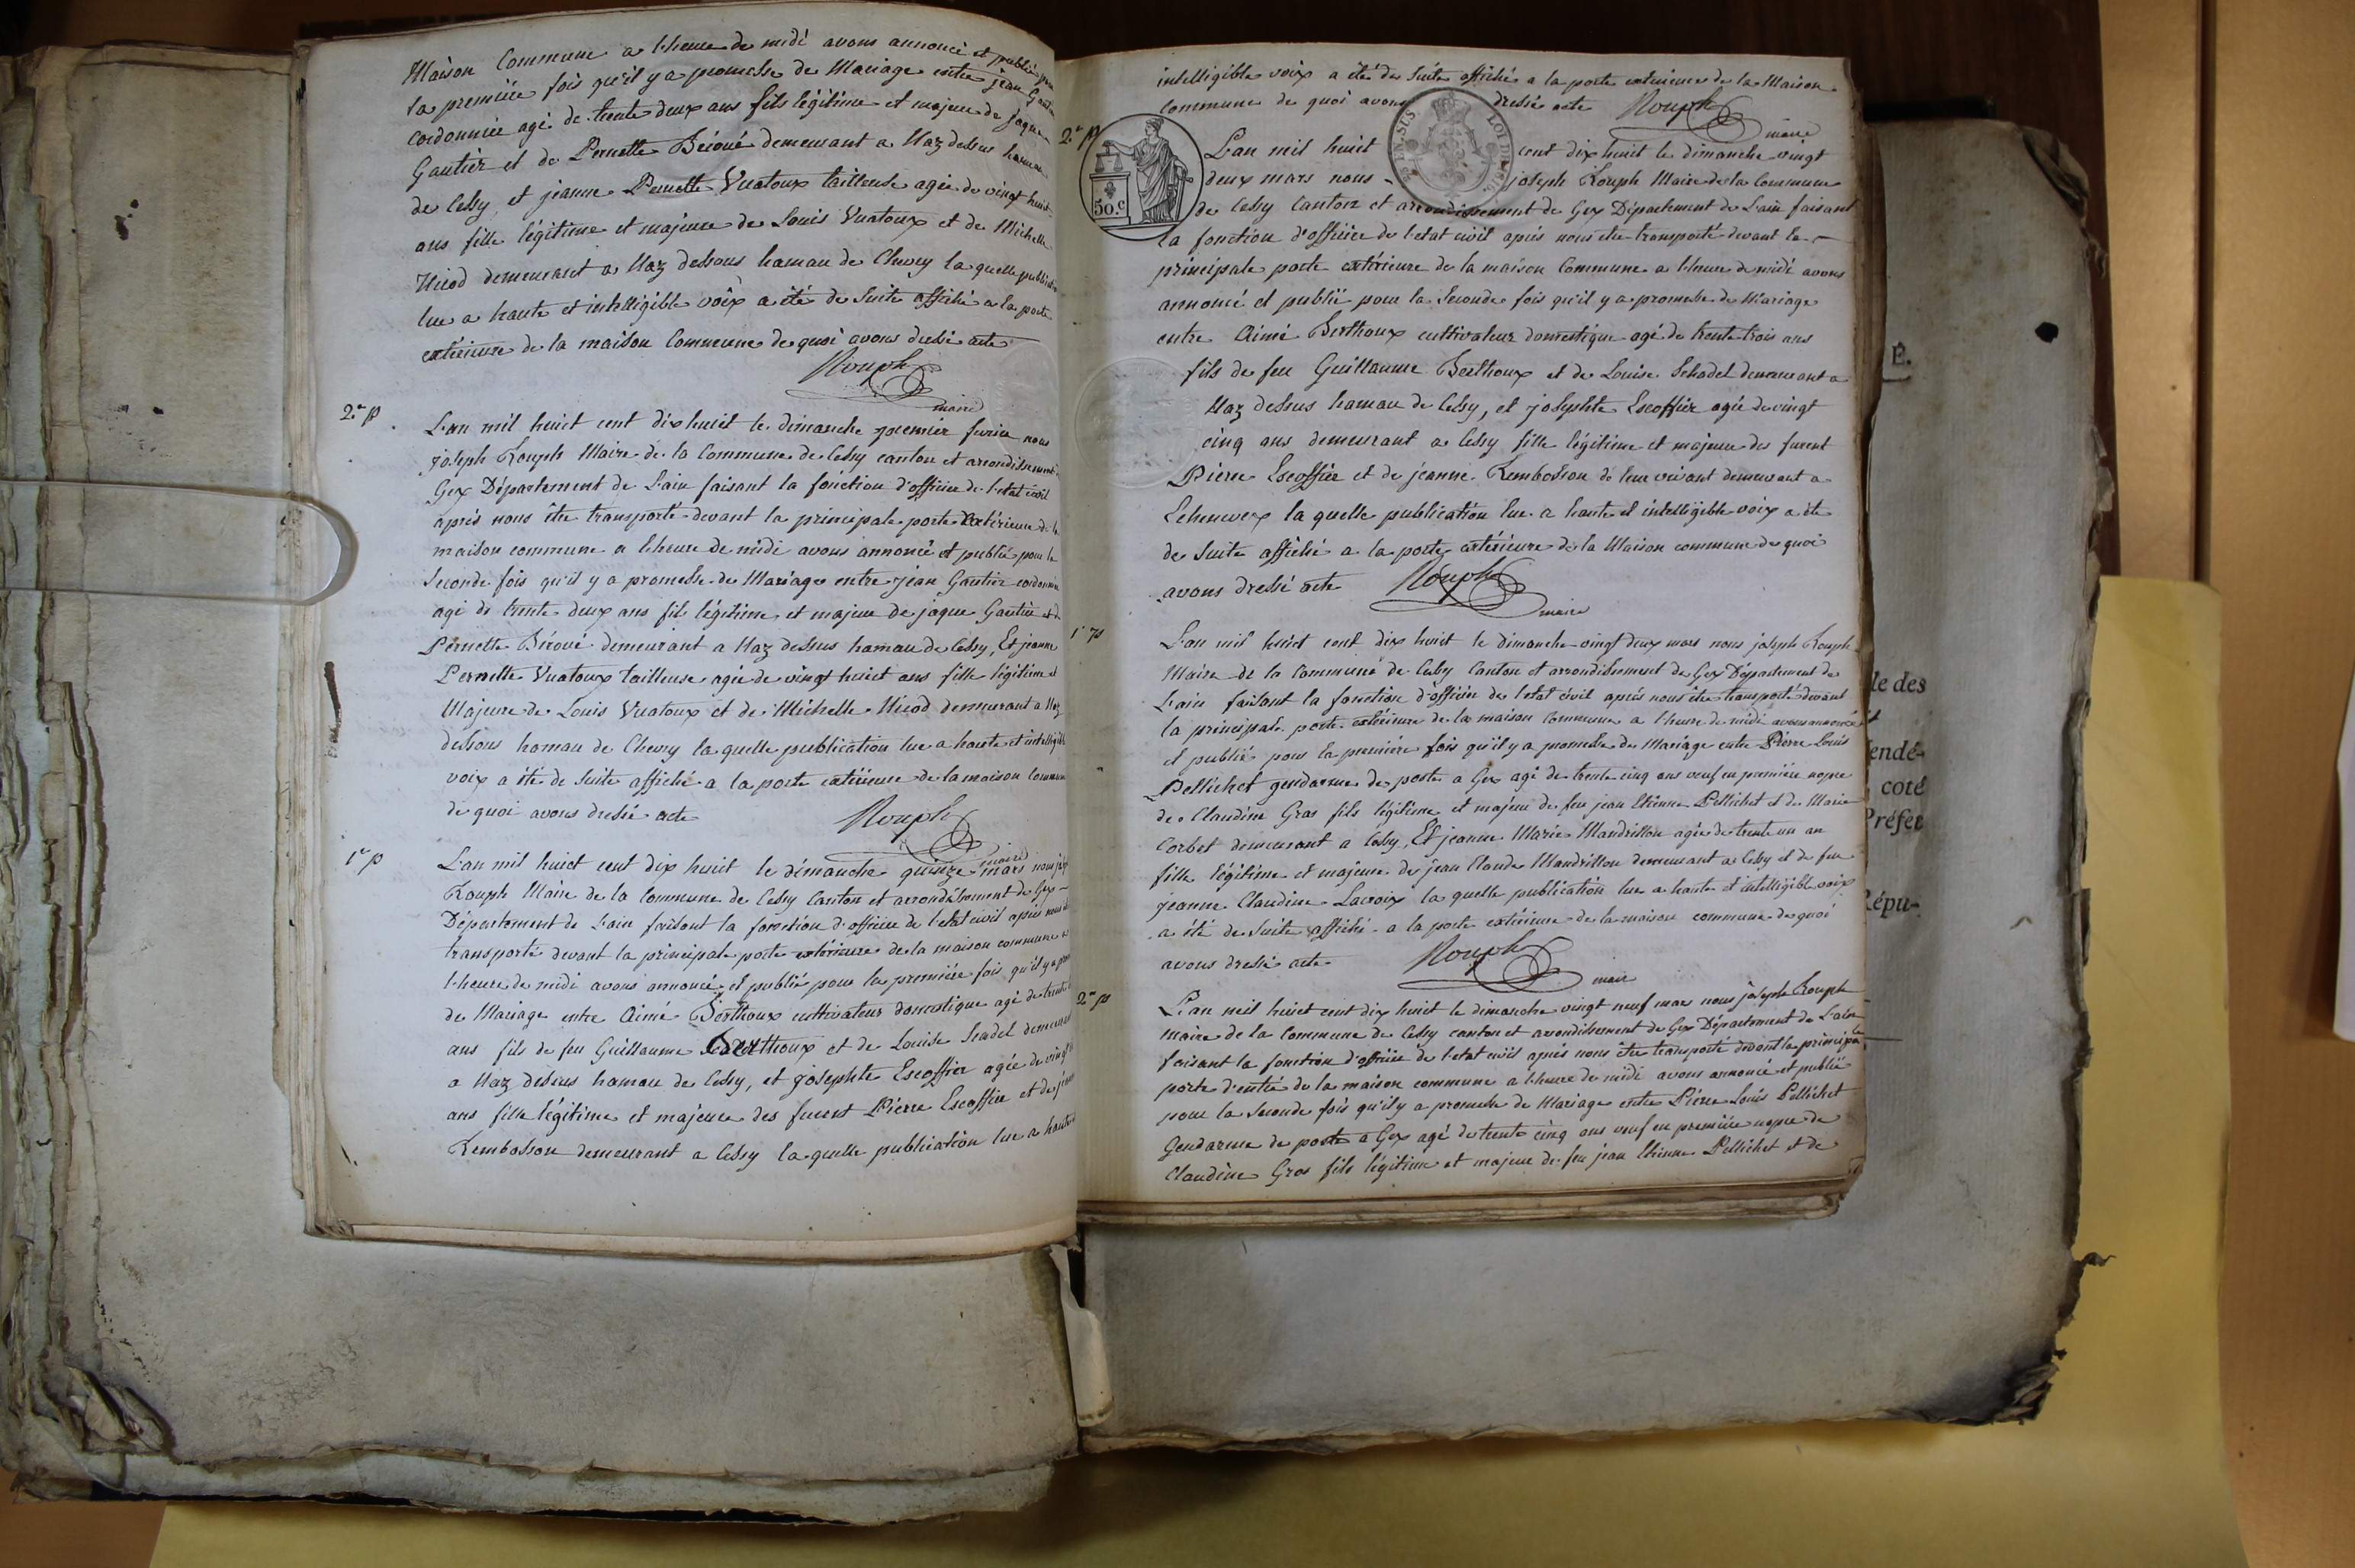 Maison Commune a l'heure de midi avons annoncé et publié pour
la premiére fois qu'il y a promesse de Mariage entre jean Gautier
cordonnier agé de trente deux ans fils légitime et majeur de jaque
Gautier et de Pernette demeurant a Naz dessus hameau
de Cessy, et jeanne Pernette Vuatoux tailleuse agée de vingt huit
ans fille légitime et majeure de Louis Vuatoux et de Michelle
Nicod demeurant a Naz dessous hameau de Chevry la quelle publication
lue a haute et intelligible voix a été de suite affiché a la porte
extérieure de la maison Commune de quoi avons dressé acte
Rouph
maire
2.e p
L'an mil huit cent dix huit le dimanche premier fevrier nous
joseph Rouph Maire de la Commune de Cessy canton et arrondissement de
Gex Département de L'ain faisant la fonction d'officier de l'etat civil
aprés nous être transporté devant la principale porte extérieure de la
maison commune a l'heure de midi avons annoncé et publié pour la
seconde fois qu'il y a promesse de Mariage entre jean Gautier cordonnier
agé de trente deux ans fils légitime et majeur de jaque Gautier et de
Pernette demeurant a Naz dessus hameau de Cessy, Et jeanne
Pernette Vuatoux tailleuse agée de vingt huit ans fille légitime et
Majeure de Louis Vuatoux et de Michelle Nicod demeurant a Naz
dessous hameau de Chevry la quelle publication lue a haute et intelligible
voix a été de suite affiché a la porte extérieure de la maison commune
de quoi avons dressé acte
Rouph
maire
1.re p
L'an mil huit cent dix huit le dimanche quinze mars nous
Rouph Maire de la Commune de Cessy Canton et arrondissement de Gex
Département de L'ain faisant la fonction d'officier de l'etat civil aprés nous
transporté devant la principale porte extérieure de la maison commune a
l'heure de midi avons annoncé et publié pour la premiére fois qu'il y a
de Mariage entre Aimé Berthoux cultivateur domestique agé de trente
ans fils de feu Guillaume Berthoux et de Louise demeurant
a Naz dessus hameau de Cessy, et josephte Escoffier agée de vingt
ans fille légitime et majeure des furent Pierre Escoffier et de
Rembosson demeurant a Cessy la quelle publication lue a haute
intelligible voix a été de suite affiché a la porte exterieure de la Maison
Commune de quoi avons dressé acte Rouph
maire
2.e p
50.c
L'an mil huit cent dix huit le dimanche vingt
deux mars nous joseph Rouph Maire de la Commune
de Cessy Canton et arrondissement de Gex Département de L'ain faisant
la fonction d'officier de l'etat civil aprés nous etre transporté devant la
principale porte extérieure de la maison Commune a l'heure de midi avons
annoncé et publié pour la seconde fois qu'il y a promesse de Mariage
entre Aimé Berthoux cultivateur domestique agé de trente trois ans
fils de feu Guillaume Berthoux et de Louise demeurant a
Naz dessus hameau de Cessy, et josephte Escoffier agée de vingt
cinq ans demeurant a Cessy fille légitime et majeure des furent
Pierre Escoffier et de jeanne Rembosson de leur vivant demeurant a
Echenevex la quelle publication lue a haute et intelligible voix a été
de suite affiché a la porte extérieure de la Maison commune de quoi
avons dressé acte Rouph
maire
1.re p
L'an mil huit cent dix huit le dimanche vingt deux mars nous joseph Rouph
Maire de la Commune de Cessy Canton et arrondissement de Gex Département de
L'ain faisant la fonction d'officier de l'etat civil aprés nous etre transporté devant
la principale porte extérieure de la maison commune a l'heure de midi avons annoncé
et publié pour la premiére fois qu'il y a promesse de Mariage entre Pierre Louis
Pellichet gendarme de poste a Gex agé de trente cinq ans veuf en premiére nopce
de Claudine Gras fils légitime et majeur de feu jean Etienne Pellichet et de Marie
Corbet demeurant a Cessy, Et jeanne Marie Mandrillon agée de trente un an
fille légitime et majeure de jean Claude Mandrillon demeurant a Cessy et de feu
jeanne Claudine Lacroix la quelle publication lue a haute et intelligible voix
a été de suite affiché a la porte extérieure de la maison commune de quoi
avons dressé acte Rouph
maire
2.e p
L'an mil huit cent dix huit le dimanche vingt neuf mars nous joseph Rouph
maire de la Commune de Cessy canton et arrondissement de Gex Département de L'ain
faisant la fonction d'officier de l'etat civil aprés nous être transporté devant la principale
porte d'entré de la maison commune a l'heure de midi avons annoncé et publié
pour la seconde fois qu'il y a promesse de Mariage entre Pierre Louis Pellichet
Gendarme de poste a Gex agé de trente cinq ans veuf en premiére nopce de
Claudine Gras fils légitime et majeur de feu jean Etienne Pellichet et de
E.
le des
endé-
coté
Préfet
Répu-